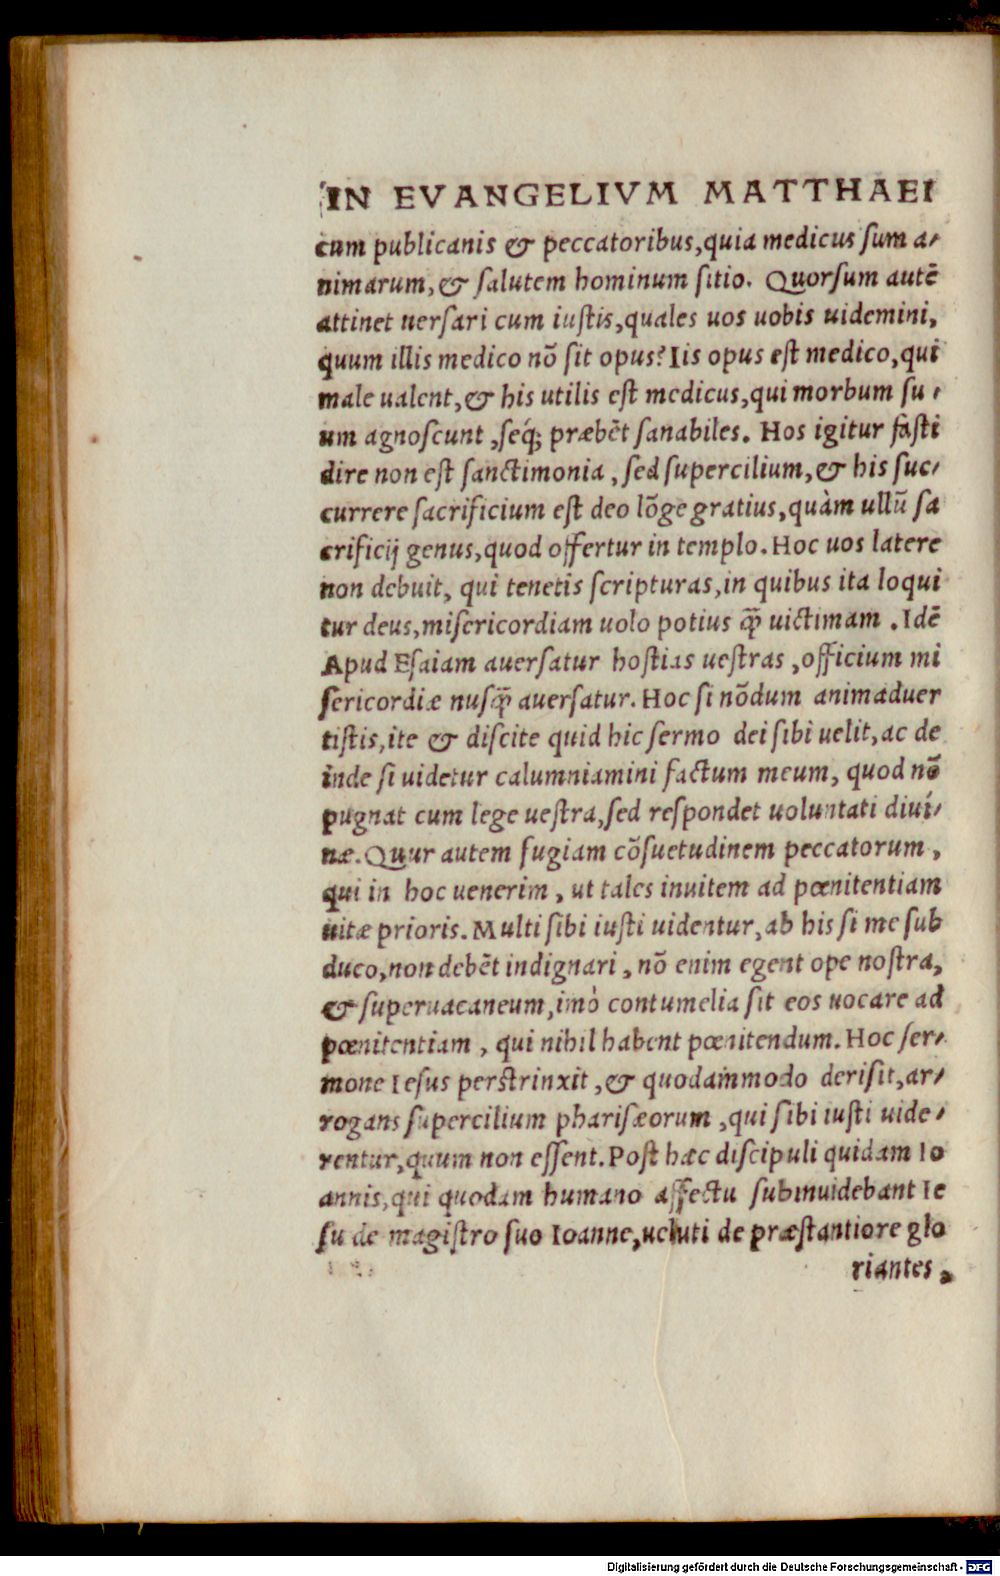 IN EVANGELIVM MATTHAEI
cum publicanis & peccatoribus,quia medicus ſum a⸗
nimarum,& ſalutem hominum ſitio. Quorſum autē
attinet uerſari cum iuſtis,quales uos uobis uidemini,
quum illis medico nō ſit opus? Iis opus eſt medico,qui
male ualent,& his utilis eſt medicus,qui morbum ſu⸗
um agnoſcunt ,ſeq́; præbēt ſanabiles. Hos igitur faſti
dire non eſt ſanctimonia , ſed ſupercilium,& his ſuc⸗
currere ſacrificium eſt deo lōge gratius,quàm ullū ſa
crificij genus,quod offertur in templo. Hoc uos latere
non debuit, qui tenetis ſcripturas,in quibus ita loqui
tur deus,miſericordiam uolo potius q̄ꝫ uictimam . Idē
Apud Eſaiam auerſatur hoſtias ueſtras ,officium mi
ſericordiæ nuſq̄ꝫ auerſatur. Hoc ſi nōdum animaduer
tiſtis,ite & diſcite quid hic ſermo dei ſibi uelit,ac de
inde ſi uidetur calumniamini factum meum, quod nō
pugnat cum lege ueſtra,ſed reſpondet uoluntati diui⸗
næ. Quur autem fugiam cōſuetudinem peccatorum ,
qui in hoc uenerim , ut tales inuitem ad pœnitentiam
uitæ prioris. Multi ſibi iuſti uidentur,ab his ſi me ſub
duco,non debēt indignari , nō enim egent ope noſtra,
& ſuperuacaneum,imò contumelia ſit eos uocare ad
pœnitentiam , qui nihil habent pœnitendum. Hoc ſer⸗
mone Ieſus perſtrinxit ,& quodammodo deriſit,ar⸗
rogans ſupercilium phariſæorum ,qui ſibi iuſti uide⸗
rentur,quum non eſſent. Poſt hæc diſcipuli quidam Io
annis,qui quodam humano affectu ſubinuidebant Ie
ſu de magiſtro ſuo Ioanne,ueluti de præſtantiore glo
riantes,
Digitalisierung gefördert durch die Deutsche Forschungsgemeinschaft - DFG